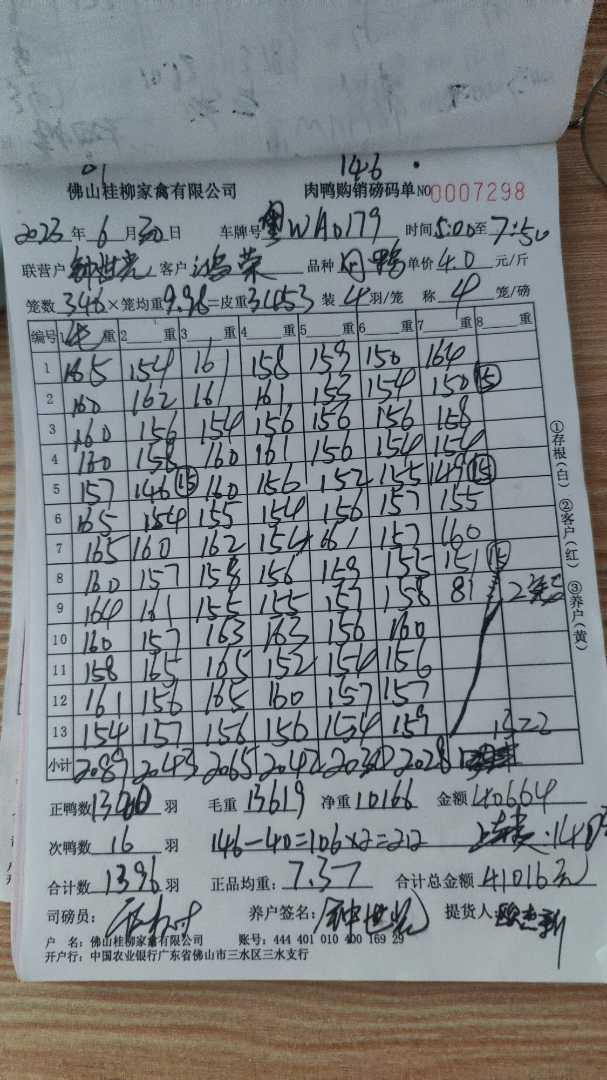 01 146.
佛山桂柳家禽有限公司 肉鸭购销磅码单 NO 0007298
2023 年 6 月 30 日 车牌号 粤WA0179 时间 5:00 至 7:50
联营户 钟世光 客户 鸿荣 品种 肉鸭 单价 4.0 元/斤
笼数 346 × 笼均重 9.98 = 皮重 3453 装 4 羽/笼 称 4 笼/磅
编号 1 4 重 2 重 3 重 4 重 5 重 6 重 7 重 8 重
1 165 154 161 158 159 150 164
2 160 162 161 161 153 154 150 15
3 160 156 154 156 156 156 158
4 160 158 160 161 156 154 154
5 157 146 15 160 156 152 155 149 15
6 165 154 155 154 156 157 155
7 165 160 162 154 161 157 160
8 160 157 158 156 159 155 151 15
9 164 161 155 155 157 158 81 2笼
10 160 157 163 163 156 160
11 158 165 165 152 154 156
12 161 156 165 160 157 157
13 154 157 156 156 154 159 1322
小计 2089 2043 2065 2042 2030 2028
正鸭数 1380 羽 毛重 13619 净重 10166 金额 40664
次鸭数 16 羽 146-40=106×2=212
合计数 1396 羽 正品均重: 7.37 合计总金额 41016元
司磅员: 养户签名: 钟世光 提货人:
户 名: 佛山桂柳家禽有限公司 账号: 444 401 010 400 169 29
开户行: 中国农业银行广东省佛山市三水区三水支行
①存根(白) ②客户(红) ③养户(黄)